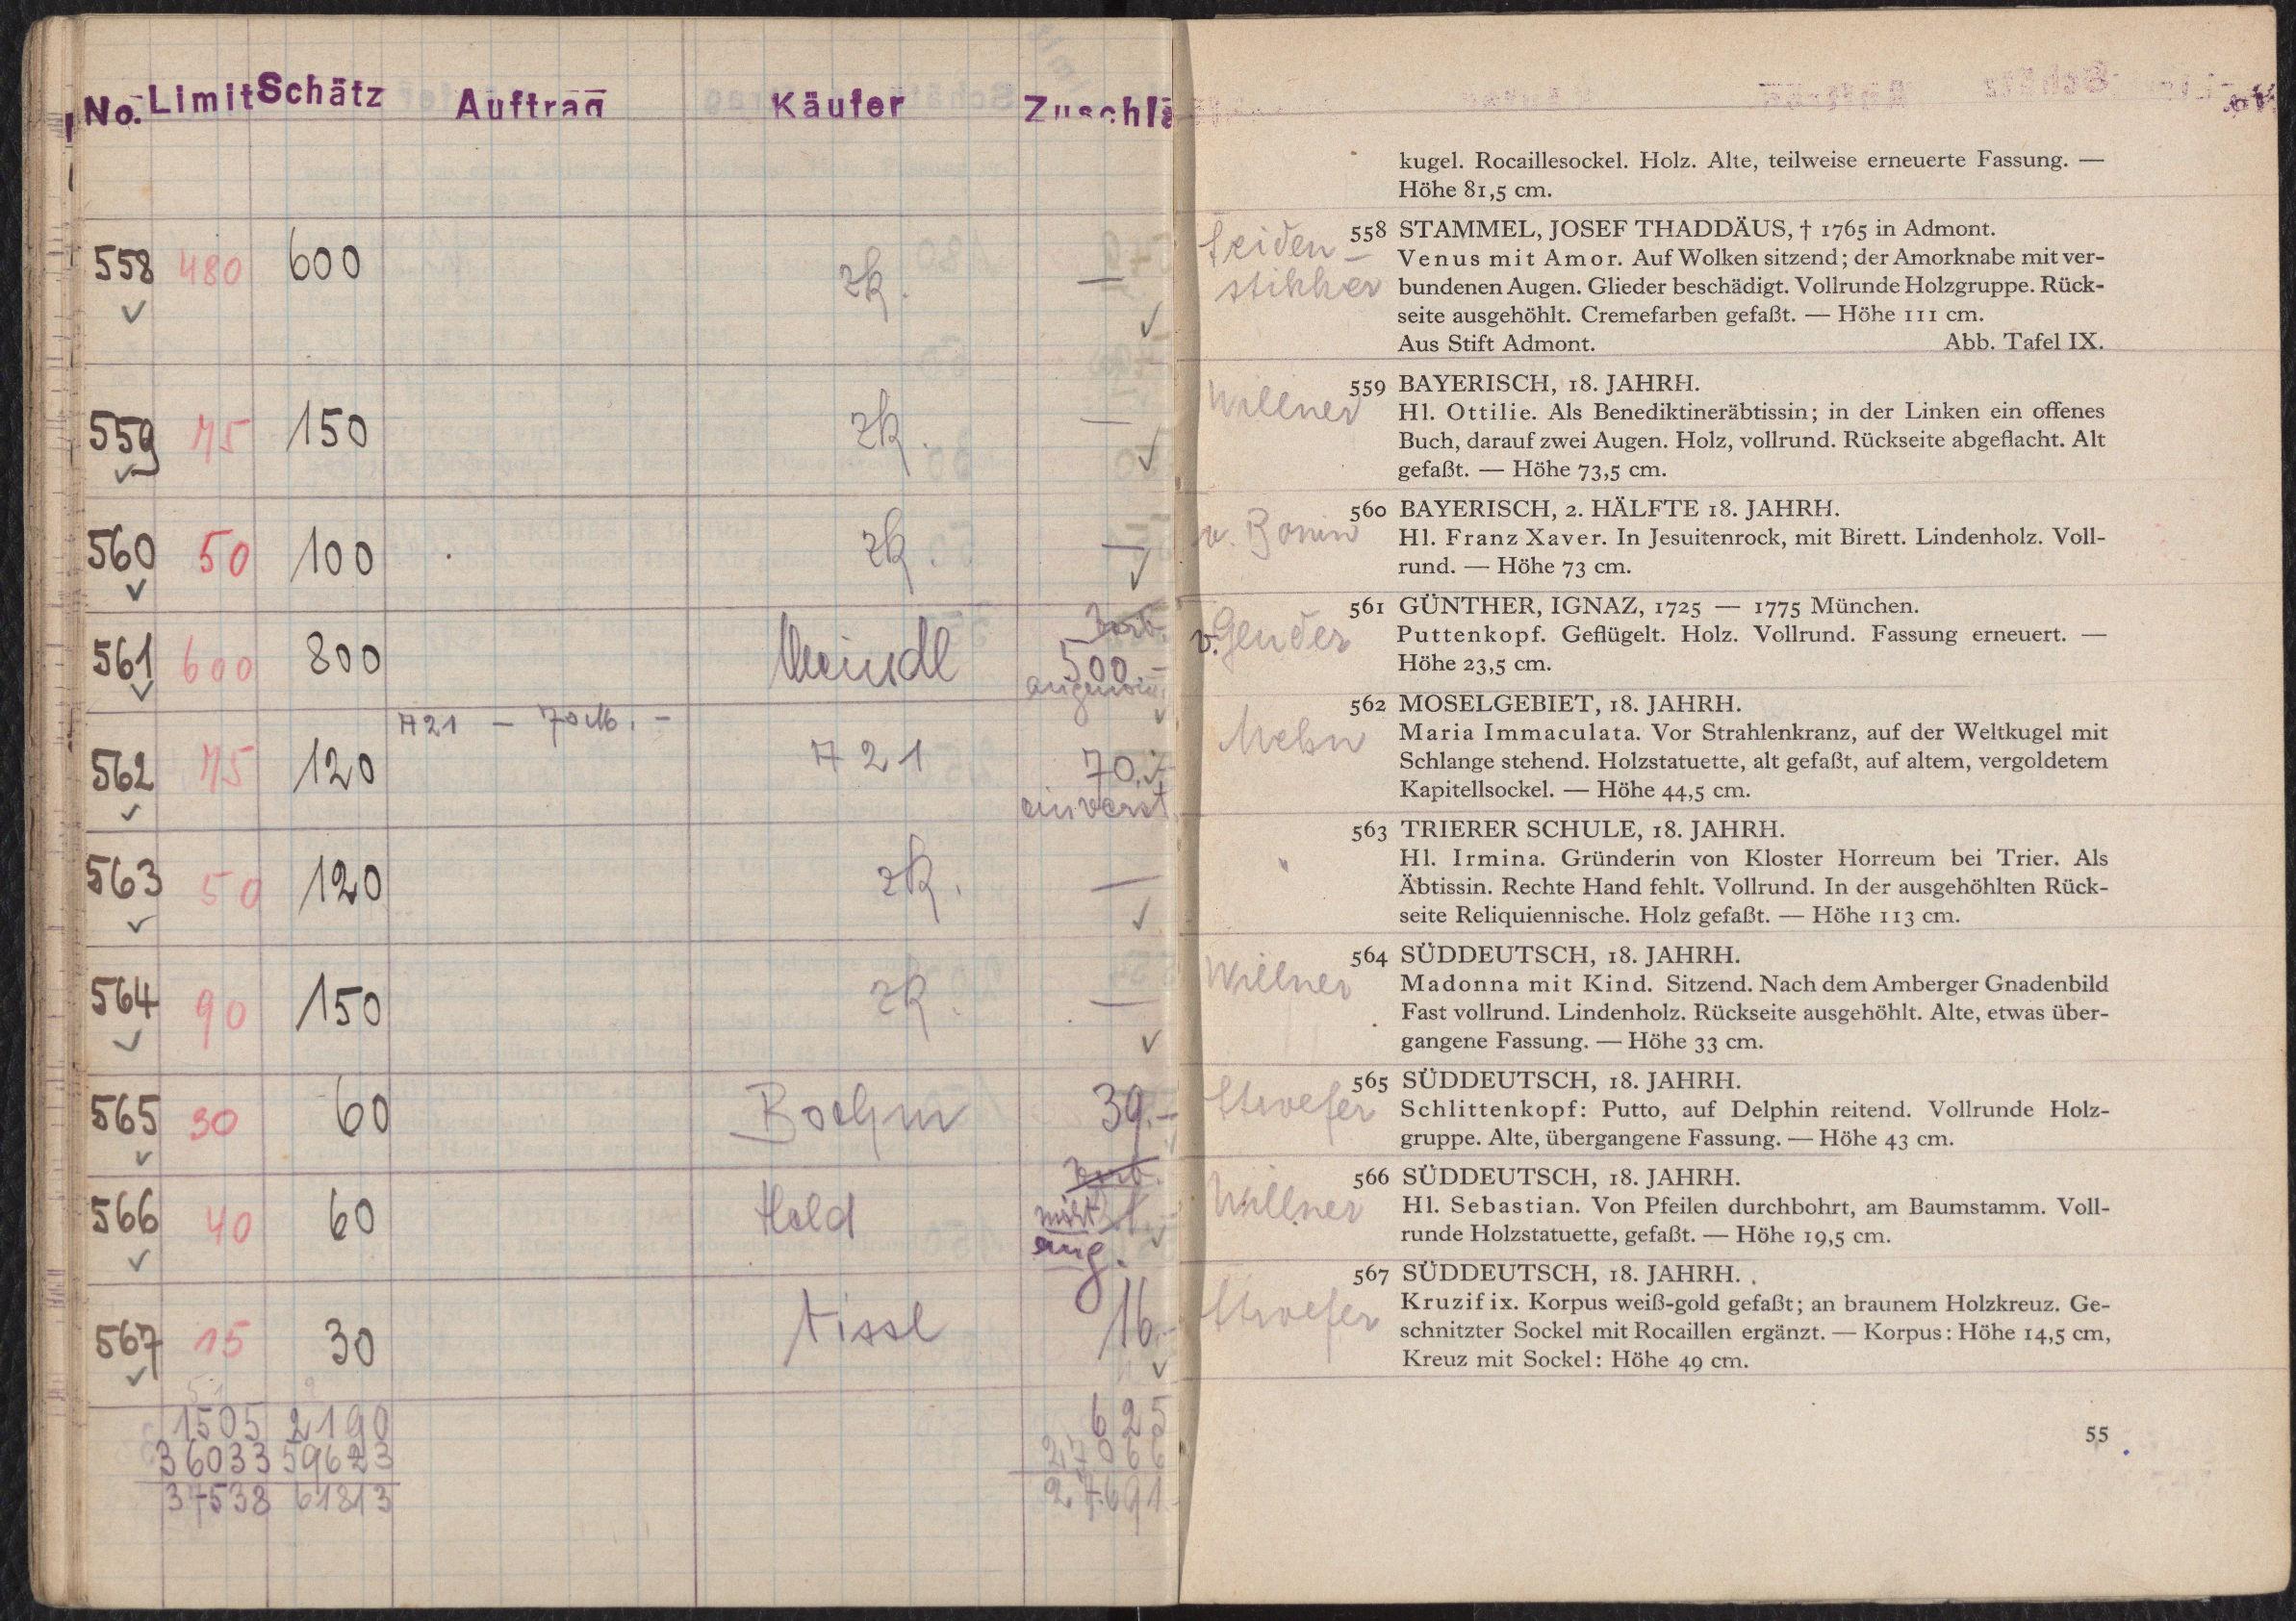 No. Limit Schätz Auftrag Käufer Zuschlä
558 480 600 zk. —
559 75 150 zk. —
560 50 100 zk. —
561 600 800 Meindl 500.—
A21 — 70 M. —
562 75 120 A21 70.—
einverst.
563 50 120 zk. —
564 90 150 zk. —
565 30 60 Boehm 39.—
566 40 60 Held
nicht
ang.
567 15 30 16.—
1505 2190 625
36033 59623 27066
37538 61813 27691
kugel. Rocaillesockel. Holz. Alte, teilweise erneuerte Fassung. —
Höhe 81,5 cm.
Seiden-
stikker
558 STAMMEL, JOSEF THADDÄUS, † 1765 in Admont.
Venus mit Amor. Auf Wolken sitzend; der Amorknabe mit ver-
bundenen Augen. Glieder beschädigt. Vollrunde Holzgruppe. Rück-
seite ausgehöhlt. Cremefarben gefaßt. — Höhe 111 cm.
Aus Stift Admont. Abb. Tafel IX.
Willner
559 BAYERISCH, 18. JAHRH.
Hl. Ottilie. Als Benediktineräbtissin; in der Linken ein offenes
Buch, darauf zwei Augen. Holz, vollrund. Rückseite abgeflacht. Alt
gefaßt. — Höhe 73,5 cm.
v. Bonin
560 BAYERISCH, 2. HÄLFTE 18. JAHRH.
Hl. Franz Xaver. In Jesuitenrock, mit Birett. Lindenholz. Voll-
rund. — Höhe 73 cm.
561 GÜNTHER, IGNAZ, 1725 — 1775 München.
Puttenkopf. Geflügelt. Holz. Vollrund. Fassung erneuert. —
Höhe 23,5 cm.
562 MOSELGEBIET, 18. JAHRH.
Maria Immaculata. Vor Strahlenkranz, auf der Weltkugel mit
Schlange stehend. Holzstatuette, alt gefaßt, auf altem, vergoldetem
Kapitellsockel. — Höhe 44,5 cm.
563 TRIERER SCHULE, 18. JAHRH.
Hl. Irmina. Gründerin von Kloster Horreum bei Trier. Als
Äbtissin. Rechte Hand fehlt. Vollrund. In der ausgehöhlten Rück-
seite Reliquiennische. Holz gefaßt. — Höhe 113 cm.
Willner
564 SÜDDEUTSCH, 18. JAHRH.
Madonna mit Kind. Sitzend. Nach dem Amberger Gnadenbild
Fast vollrund. Lindenholz. Rückseite ausgehöhlt. Alte, etwas über-
gangene Fassung. — Höhe 33 cm.
Stroefer
565 SÜDDEUTSCH, 18. JAHRH.
Schlittenkopf: Putto, auf Delphin reitend. Vollrunde Holz-
gruppe. Alte, übergangene Fassung. — Höhe 43 cm.
Willner
566 SÜDDEUTSCH, 18. JAHRH.
Hl. Sebastian. Von Pfeilen durchbohrt, am Baumstamm. Voll-
runde Holzstatuette, gefaßt. — Höhe 19,5 cm.
Stroefer
567 SÜDDEUTSCH, 18. JAHRH.
Kruzifix. Korpus weiß-gold gefaßt; an braunem Holzkreuz. Ge-
schnitzter Sockel mit Rocaillen ergänzt. — Korpus: Höhe 14,5 cm,
Kreuz mit Sockel: Höhe 49 cm.
55